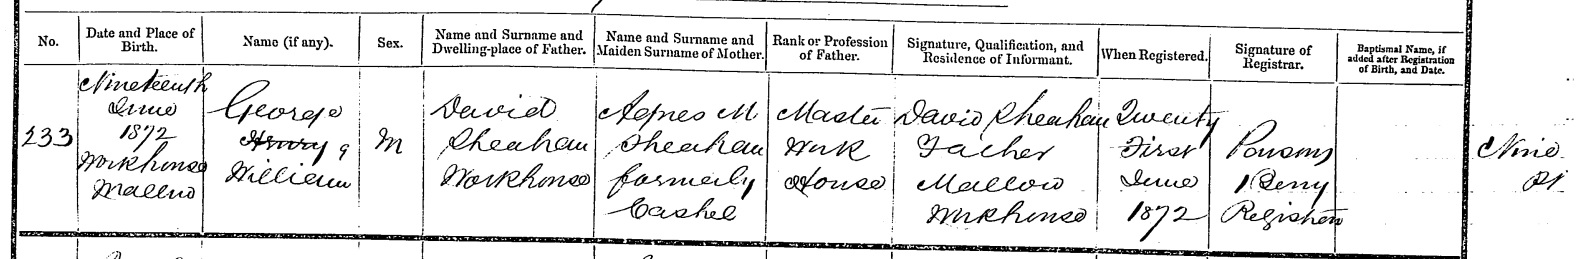 No.
Date and Place of
Birth.
Name (if any).
Sex.
Name and Surname and
Dwelling-place of Father.
Name and Surname and
Maiden Surname of Mother.
Rank or Profession
of Father.
Signature, Qualification, and
Residence of Informant.
When Registered.
Signature of
Registrar.
Baptismal Name, if
added after Registration
of Birth, and Date.
233
Nineteenth
June
1872
Workhouse
Mallow
George
Henry
William
M
David
Sheahan
Workhouse
Agnes M
Sheahan
formerly
Cashel
Master
Work
House
David Sheahan
Father
Mallow
Workhouse
Twenty
First
June
1872
Parsons
Berry
Registrar
Nine